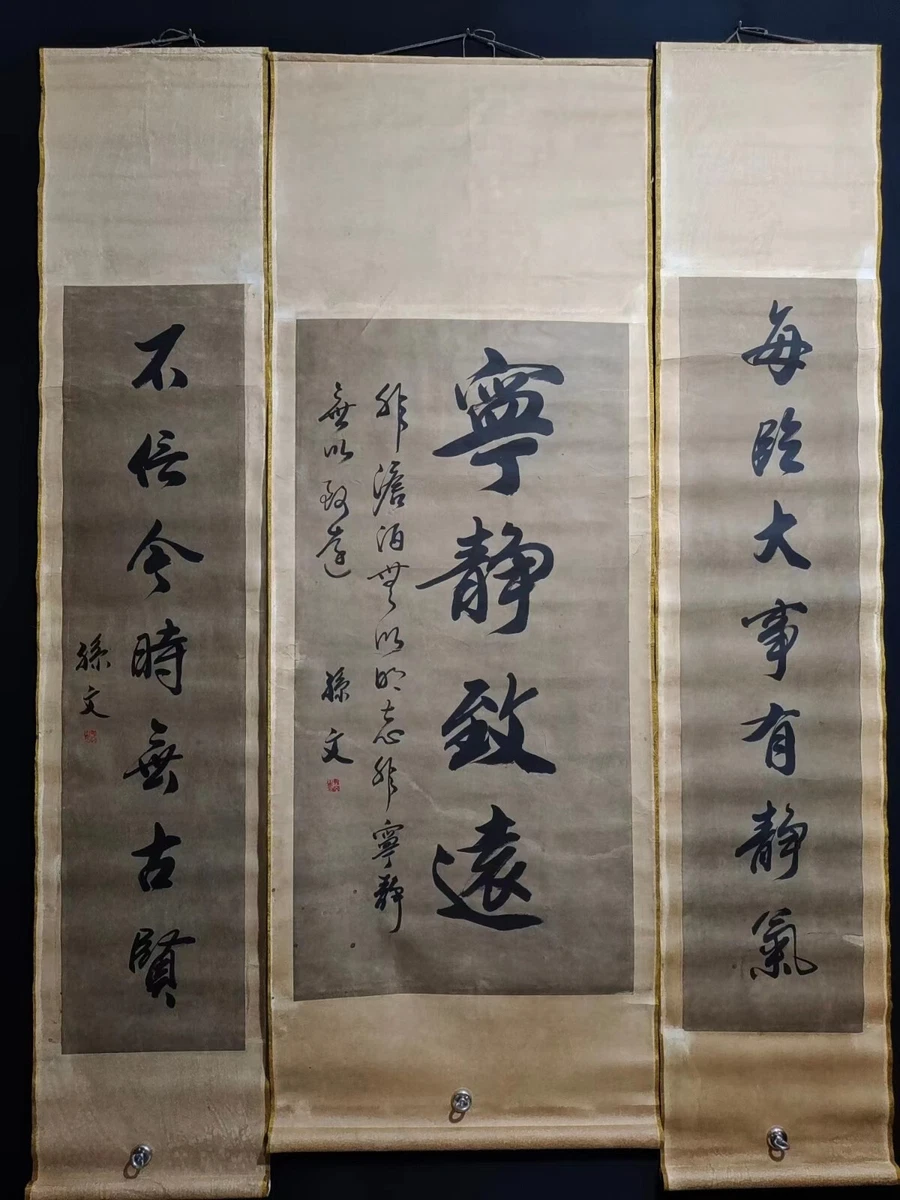 每臨大事有靜氣
寧靜致遠
非澹泊無以明志非寧靜
無以致遠
孫文
不信今時無古賢
孫文